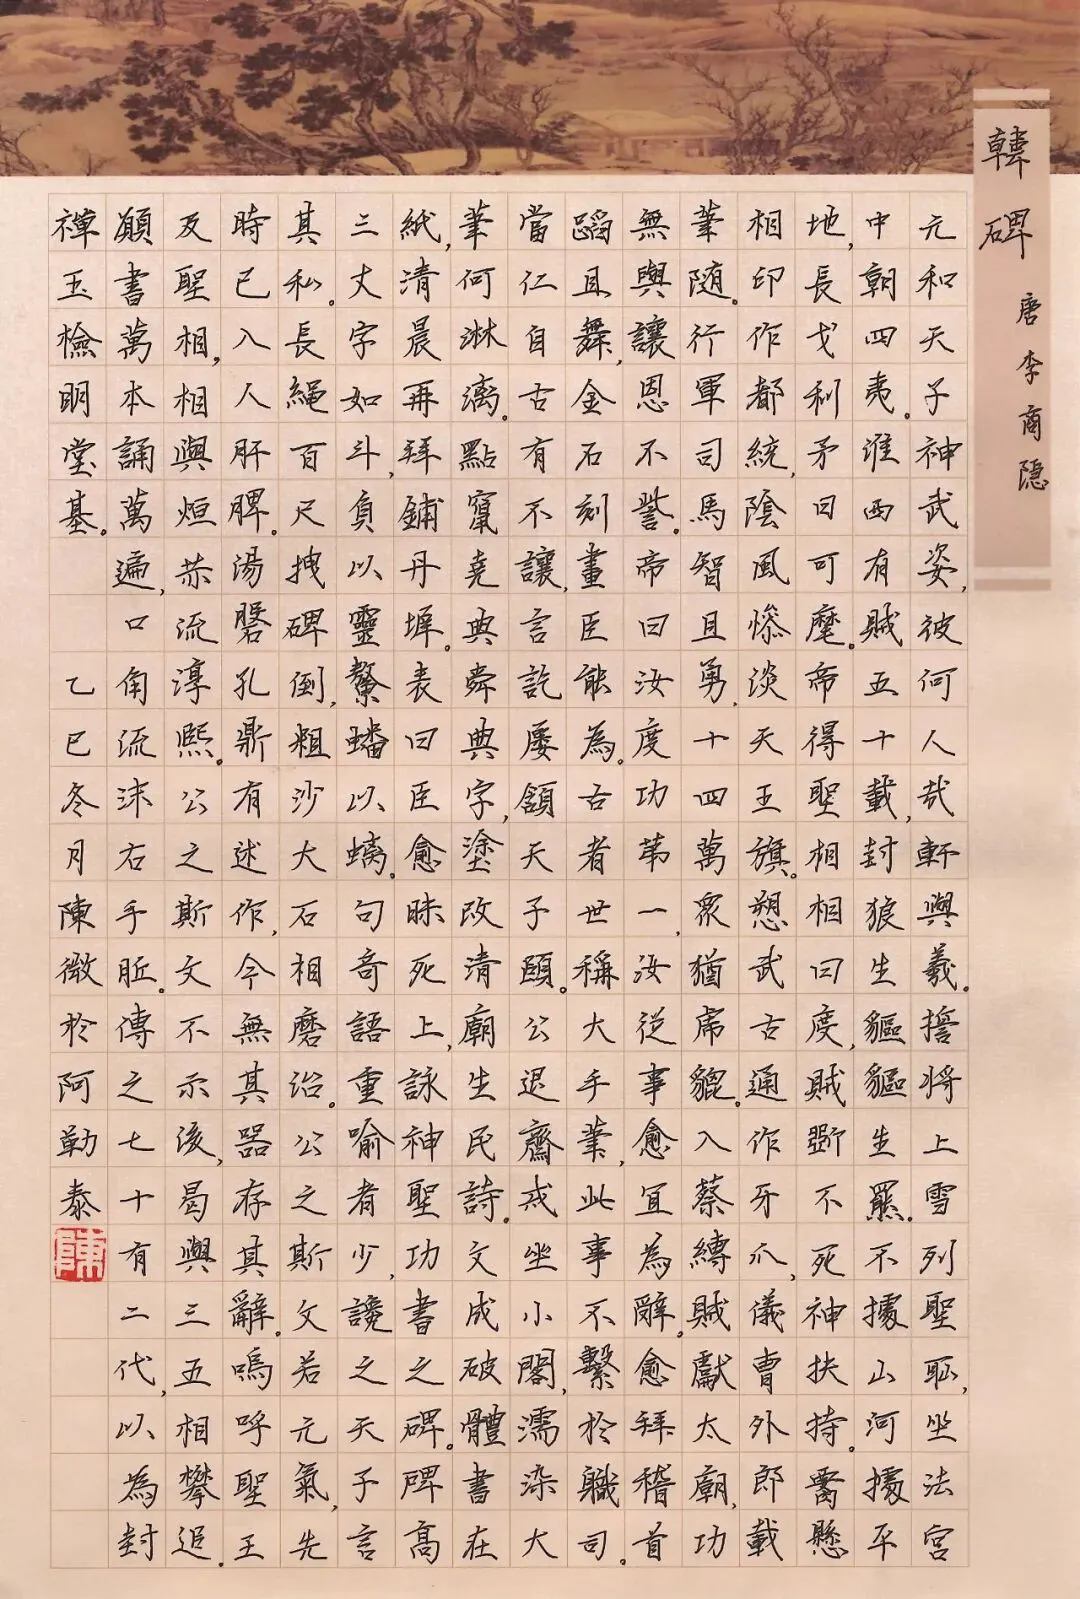 韓碑
唐李商隐
元和天子神武姿,彼何人哉軒與羲。誓將上雪列聖恥,坐法宮
中朝四夷。淮西有賊五十載,封狼生貙貙生羆。不據山河據平
地,長戈利矛日可麾。帝得聖相相曰度,賊斫不死神扶持。腰懸
相印作都統,陰風慘淡天王旗。愬武古通作牙爪,儀曹外郎載
筆隨。行軍司馬智且勇,十四萬眾猶虎貔。入蔡縛賊獻太廟,功
無與讓恩不訾。帝曰汝度功第一,汝從事愈宜為辭,愈拜稽首
蹈且舞,金石刻畫臣能為。古者世稱大手筆,此事不繫於職司。
當仁自古有不讓,言訖屢頷天子頤。公退齋戒坐小閣,濡染大
筆何淋漓。點竄堯典舜典字,塗改清廟生民詩。文成破體書在
紙,清晨再拜鋪丹墀。表曰臣愈昧死上,詠神聖功書之碑。碑高
三丈字如斗,負以靈鰲蟠以螭。句奇語重喻者少,讒之天子言
其私。長繩百尺拽碑倒,粗沙大石相磨治。公之斯文若元氣,先
時已入人肝脾。湯磐孔鼎有述作,今無其器存其辭。嗚呼聖王
及聖相,相與烜赫流淳熙。公之斯文不示後,曷與三五相攀追。
願書萬本誦萬遍,口角流沫右手胝。傳之七十有二代,以為封
禪玉檢明堂基。 乙巳冬月陳微於阿勒泰
陳